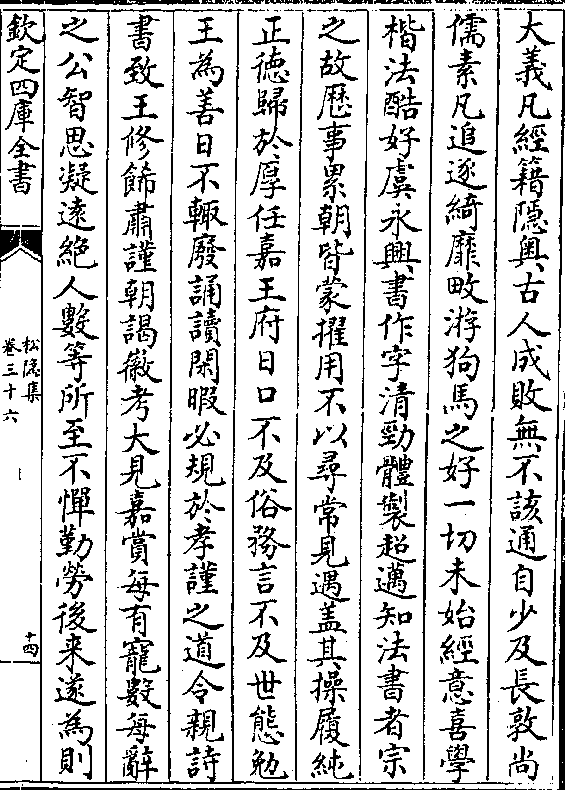 大義凡經籍隠奥古人成敗無不該通自少及長敦尚
儒素凡追逐綺靡畋游狗馬之好一切未始經意喜學
楷法酷好虞永興書作字清勁體製超邁知法書者宗
之故歴事累朝皆蒙擢用不以尋常見遇盖其操履純
正徳歸於厚任嘉王府日口不及俗務言不及世態勉
王為善日不輙廢誦讀閑暇必規於孝謹之道令親詩
書致王修飾肅謹朝謁徽考大見嘉賞每有寵數每辭
之公智思凝逺絶人數等所至不憚勤勞後来遂為則
欽定四庫全書
松隠集
卷三十六
十四